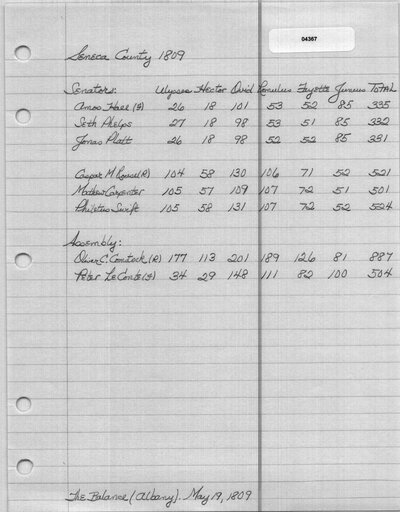 04367
Seneca County 1809
Senators: Ulysses Hector Ovid Romulus Fayette Junius TOTAL
Amos Hall (F) 26 18 101 53 52 85 335
Seth Phelps 27 18 98 53 51 85 332
Jonas Platt 26 18 98 52 52 85 331
Gaspar M. Rousel (R) 104 58 130 106 71 52 521
Mathew Carpenter 105 57 109 107 72 51 501
Philetus Swift 105 58 131 107 72 52 524
Assembly:
Oliver C. Comstock (R) 177 113 201 189 126 81 887
Peter LeConte (F) 34 29 148 111 82 100 504
The Balance (Albany). May 19, 1809